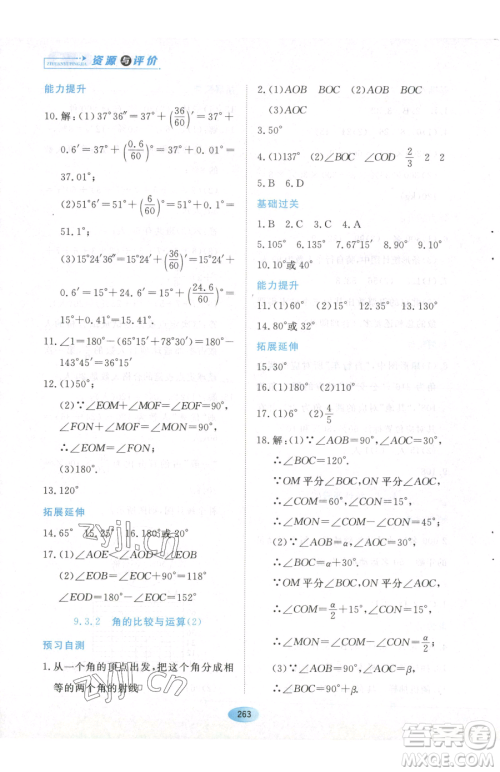 资源与评价
能力提升
10.解:(1)37°36″=37°+(36/60)′=37°
+0.6′=37°+(0.6/60)°=37°+0.01°=
37.01°;
(2)51°6′=51°+(6/60)°=51°+0.1°=
51.1°;
(3)15°24′36″=15°24′+(36/60)′=
15°24′+0.6′=15°+(24.6/60)°=
15°+0.41°=15.41°.
11.∠1=180°-(65°15′+78°30′)=180°-
143°45′=36°15′
12.(1)50°;
(2)∵∠EOM+∠MOF=∠EOF=90°,
∠FON+∠MOF=∠MON=90°,
∴∠EOM=∠FON.
(3)180°
13.120°
拓展延伸
14.65° 15.25° 16.180°或20°
17.(1)∠AOE<∠AOF=∠AOD
(2)∠EOB=∠EOC+90°=118°
∠EOD=180°-∠EOC=152°
9.3.2 角的比较与运算(2)
预习自测
1.从一个角的顶点出发,把这个角分成相
等的两个角的射线
2.(1)AOB AOB BOC BOC
(3)AOC
3.50°
4.(1)137° (2)∠BOC ∠COD 2/3 2 2
5.B 6.D
基础过关
1.B 2.C 3.C 4.A
5.105° 6.135° 7.67°15′ 8.90° 9.90°
10.10°或40°
能力提升
11.(1)60° (2)15° 12.35° 13.130°
14.80°或32°
拓展延伸
15.30°
16.(1)180° (2)110°
17.(1)6° (2)4/5
18.解:(1)∵∠AOB=90°,∠AOC=30°,
∴∠BOC=120°.
∵OM平分∠BOC,ON平分∠AOC,
∴∠COM=60°,∠CON=15°,
∴∠MON=∠COM-∠CON=45°.
(2)∵∠AOB=α,∠AOC=30°,
∴∠BOC=α+30°.
∵OM平分∠BOC,ON平分∠AOC,
∴∠COM=α/2+15°,∠CON=15°,
∴∠MON=∠COM-∠CON=α/2.
(3)∵∠AOB=90°,∠AOC=β,
∴∠BOC=90°+β.
263
zyjl.cn
zyjl.cn